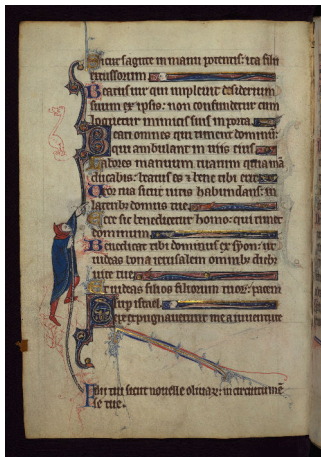 Sicut sagitte in manu potentis: ita filii
excussorum
Beatus vir qui implevit desiderium
suum ex ipsis: non confundetur cum
loquetur inimicis suis in porta
Beati omnes qui timent dominum:
qui ambulant in viis eius
Labores manuum tuarum quia man
ducabis: beatus es et bene tibi erit
Uxor tua sicut vitis habundans: in
lateribus domus tue
Ecce sic benedicetur homo: qui timet
dominum
Benedicat tibi dominus ex syon: ut
videas bona ierusalem omnibus dieb
vite tue
Et videas filios filiorum tuor: pacem
sup israel
Sepe expugnaverunt me a iuventute
Filii tui sicut novelle olivar: in circuitu men
se tue.